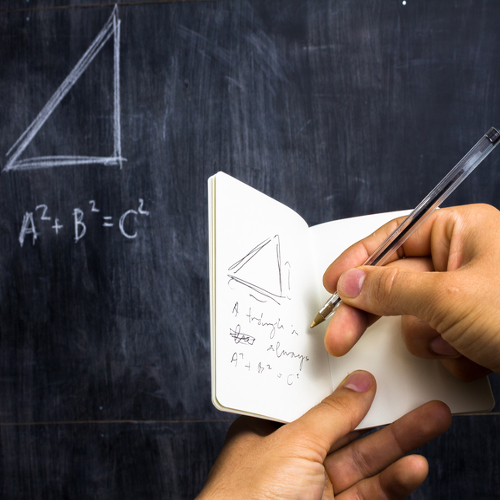 A² + B² = C²
A triangle is
always
A² + B² = C²